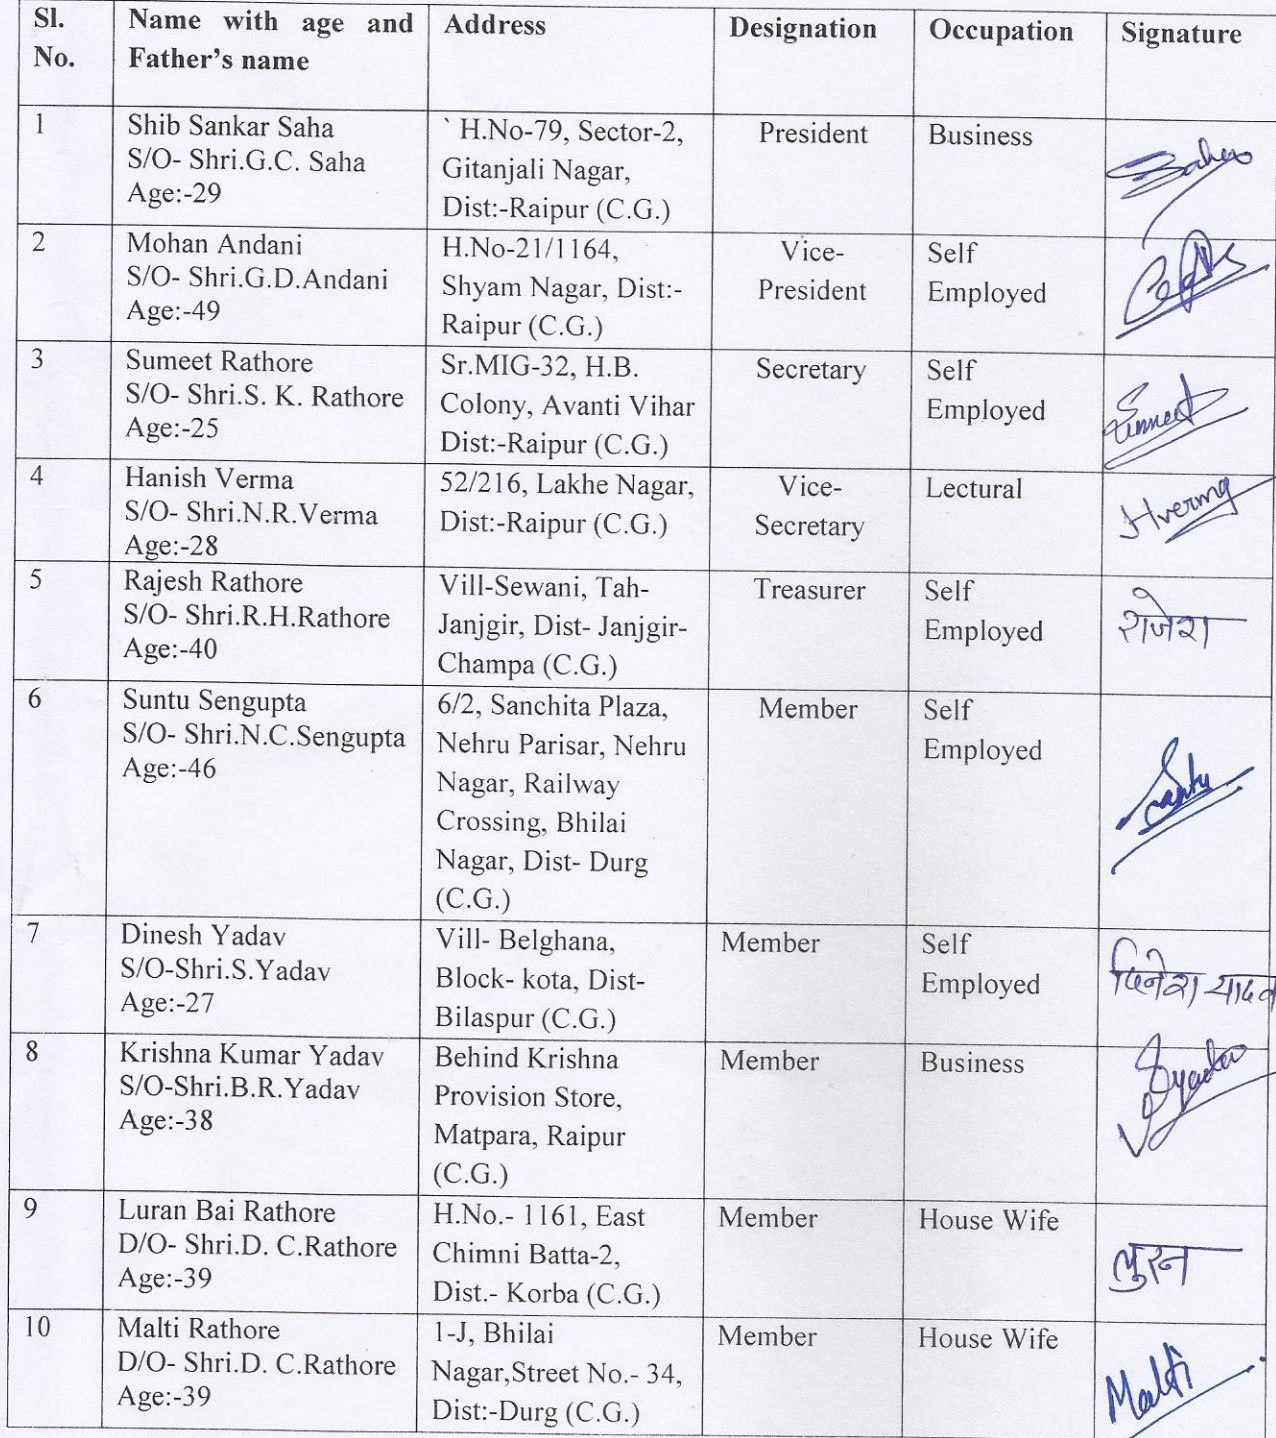 Sl. No.
Name with age and Father's name
Address
Designation
Occupation
Signature
1
Shib Sankar Saha
S/O- Shri.G.C. Saha
Age:-29
` H.No-79, Sector-2,
Gitanjali Nagar,
Dist:-Raipur (C.G.)
President
Business
2
Mohan Andani
S/O- Shri.G.D.Andani
Age:-49
H.No-21/1164,
Shyam Nagar, Dist:-
Raipur (C.G.)
Vice-
President
Self
Employed
3
Sumeet Rathore
S/O- Shri.S. K. Rathore
Age:-25
Sr.MIG-32, H.B.
Colony, Avanti Vihar
Dist:-Raipur (C.G.)
Secretary
Self
Employed
Sumeet
4
Hanish Verma
S/O- Shri.N.R.Verma
Age:-28
52/216, Lakhe Nagar,
Dist:-Raipur (C.G.)
Vice-
Secretary
Lectural
Hverma
5
Rajesh Rathore
S/O- Shri.R.H.Rathore
Age:-40
Vill-Sewani, Tah-
Janjgir, Dist- Janjgir-
Champa (C.G.)
Treasurer
Self
Employed
राजेश
6
Suntu Sengupta
S/O- Shri.N.C.Sengupta
Age:-46
6/2, Sanchita Plaza,
Nehru Parisar, Nehru
Nagar, Railway
Crossing, Bhilai
Nagar, Dist- Durg
(C.G.)
Member
Self
Employed
7
Dinesh Yadav
S/O-Shri.S.Yadav
Age:-27
Vill- Belghana,
Block- kota, Dist-
Bilaspur (C.G.)
Member
Self
Employed
दिनेश यादव
8
Krishna Kumar Yadav
S/O-Shri.B.R.Yadav
Age:-38
Behind Krishna
Provision Store,
Matpara, Raipur
(C.G.)
Member
Business
9
Luran Bai Rathore
D/O- Shri.D. C.Rathore
Age:-39
H.No.- 1161, East
Chimni Batta-2,
Dist.- Korba (C.G.)
Member
House Wife
लुरन
10
Malti Rathore
D/O- Shri.D. C.Rathore
Age:-39
1-J, Bhilai
Nagar,Street No.- 34,
Dist:-Durg (C.G.)
Member
House Wife
Malti